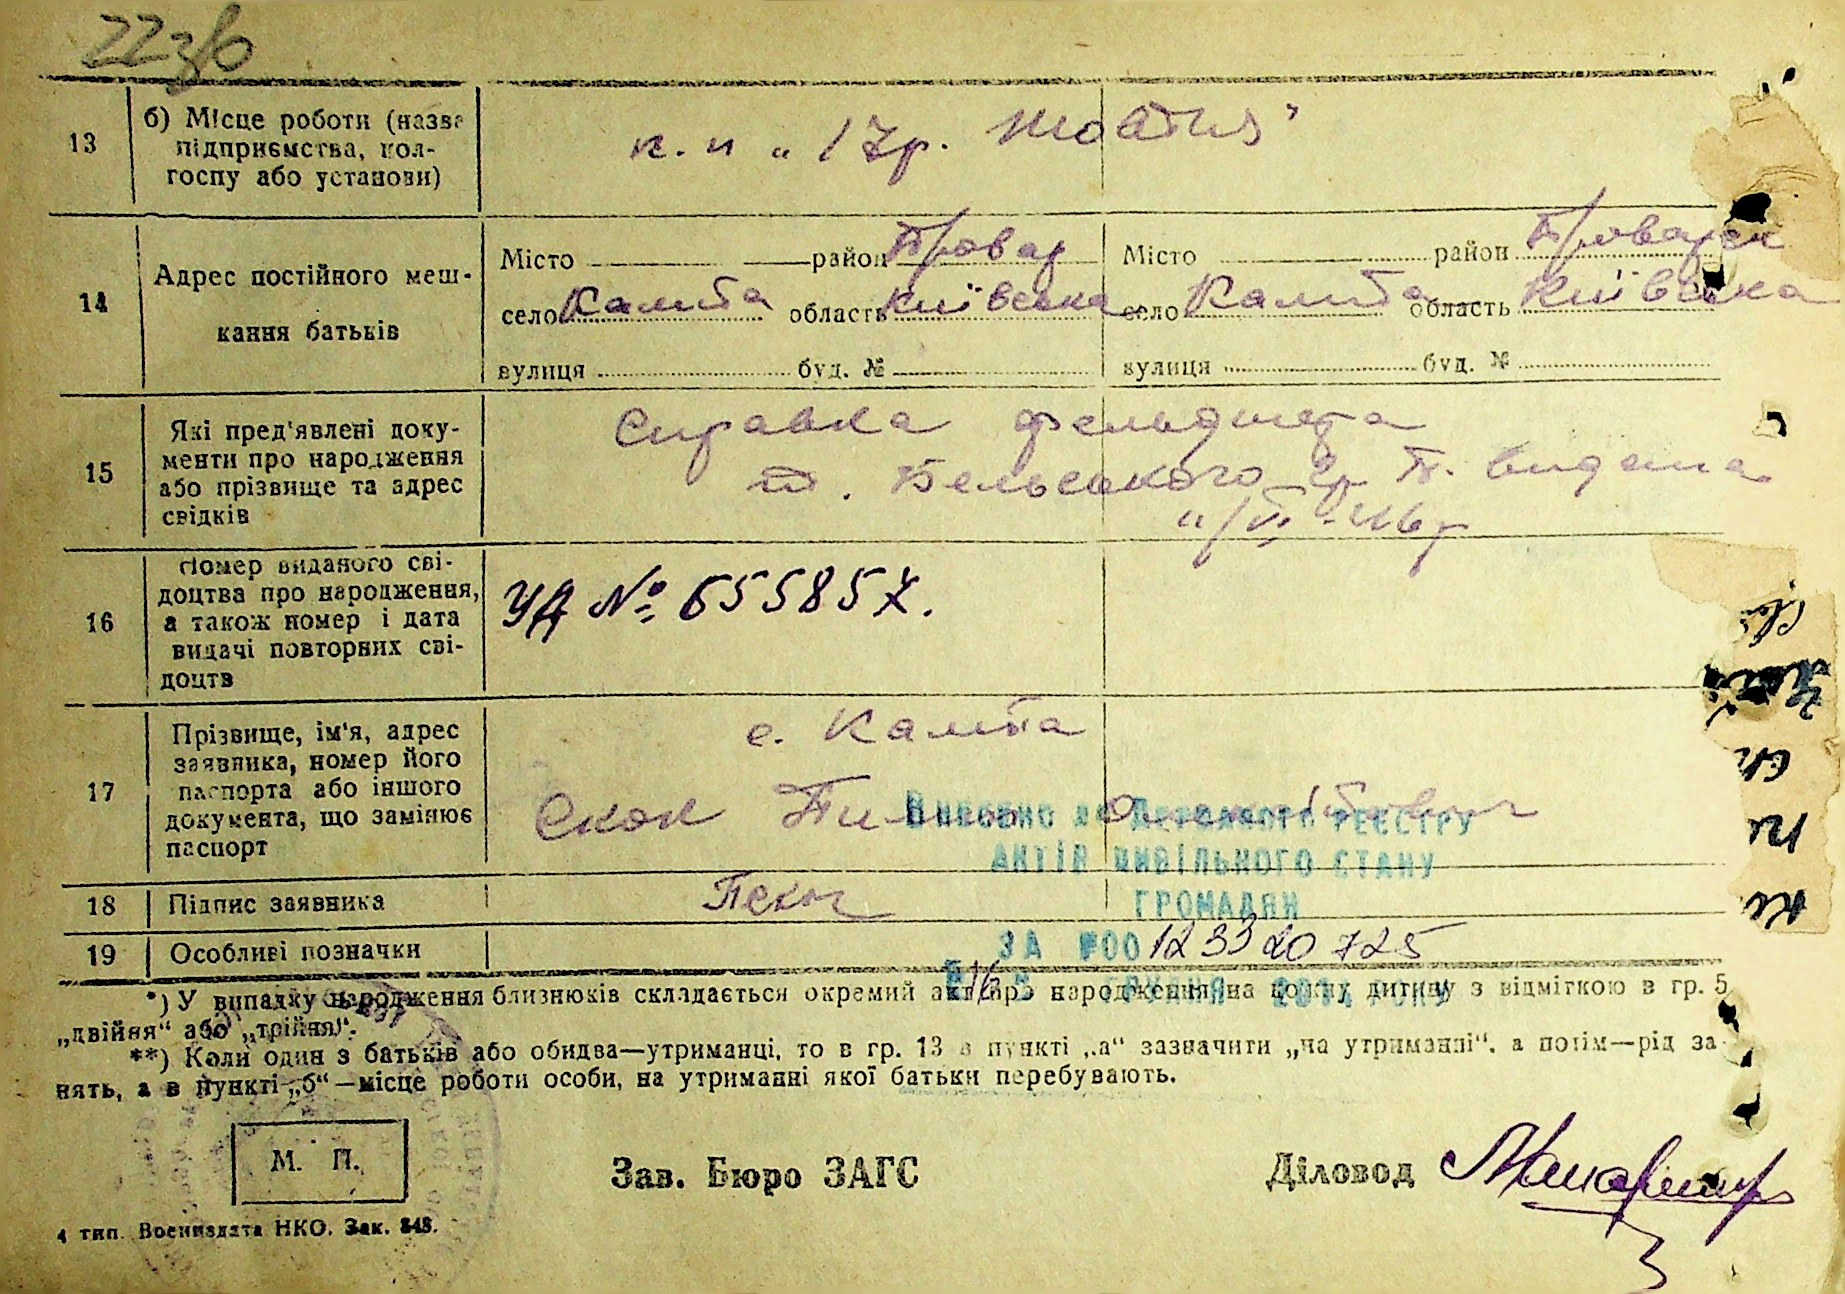 22зв
13
б) Місце роботи (назва
підприємства, кол-
госпу або установи)
к. п „ 17 р. Жовтня"
14
Адрес постійного меш-
кання батьків
Місто район Бровар
село Калита область Київська
вулиця буд. №
Місто район Броварськ
село Калита область Київська
вулиця буд. №
15
Які пред'явлені доку-
менти про народження
або прізвище та адрес
свідків
Справка фельдшера
т. Бельського видана
16
Номер виданого сві-
доцтва про народження,
а також номер і дата
видачі повторних сві-
доцтв
УД № 655857.
17
Прізвище, ім'я, адрес
заявника, номер його
паспорта або іншого
документа, що замінює
паспорт
с. Калита
Скок Пилип
Внесено до Державного реєстру
актів цивільного стану
громадян
за №00 1233 20 725
18
Підпис заявника
19
Особливі позначки
*) У випадку народження близнюків складається окремий акт про народження на кожну дитину з відміткою в гр. 5
„двійня“ або „трійня“.
**) Коли один з батьків або обидва—утриманці, то в гр. 13 в пункті „а“ зазначити „на утриманні“, а потім—рід за-
нять, а в пункті „б“—місце роботи особи, на утриманні якої батьки перебувають.
М. П.
Зав. Бюро ЗАГС
Діловод
4 тип. Воениздата НКО. Зак. 848.